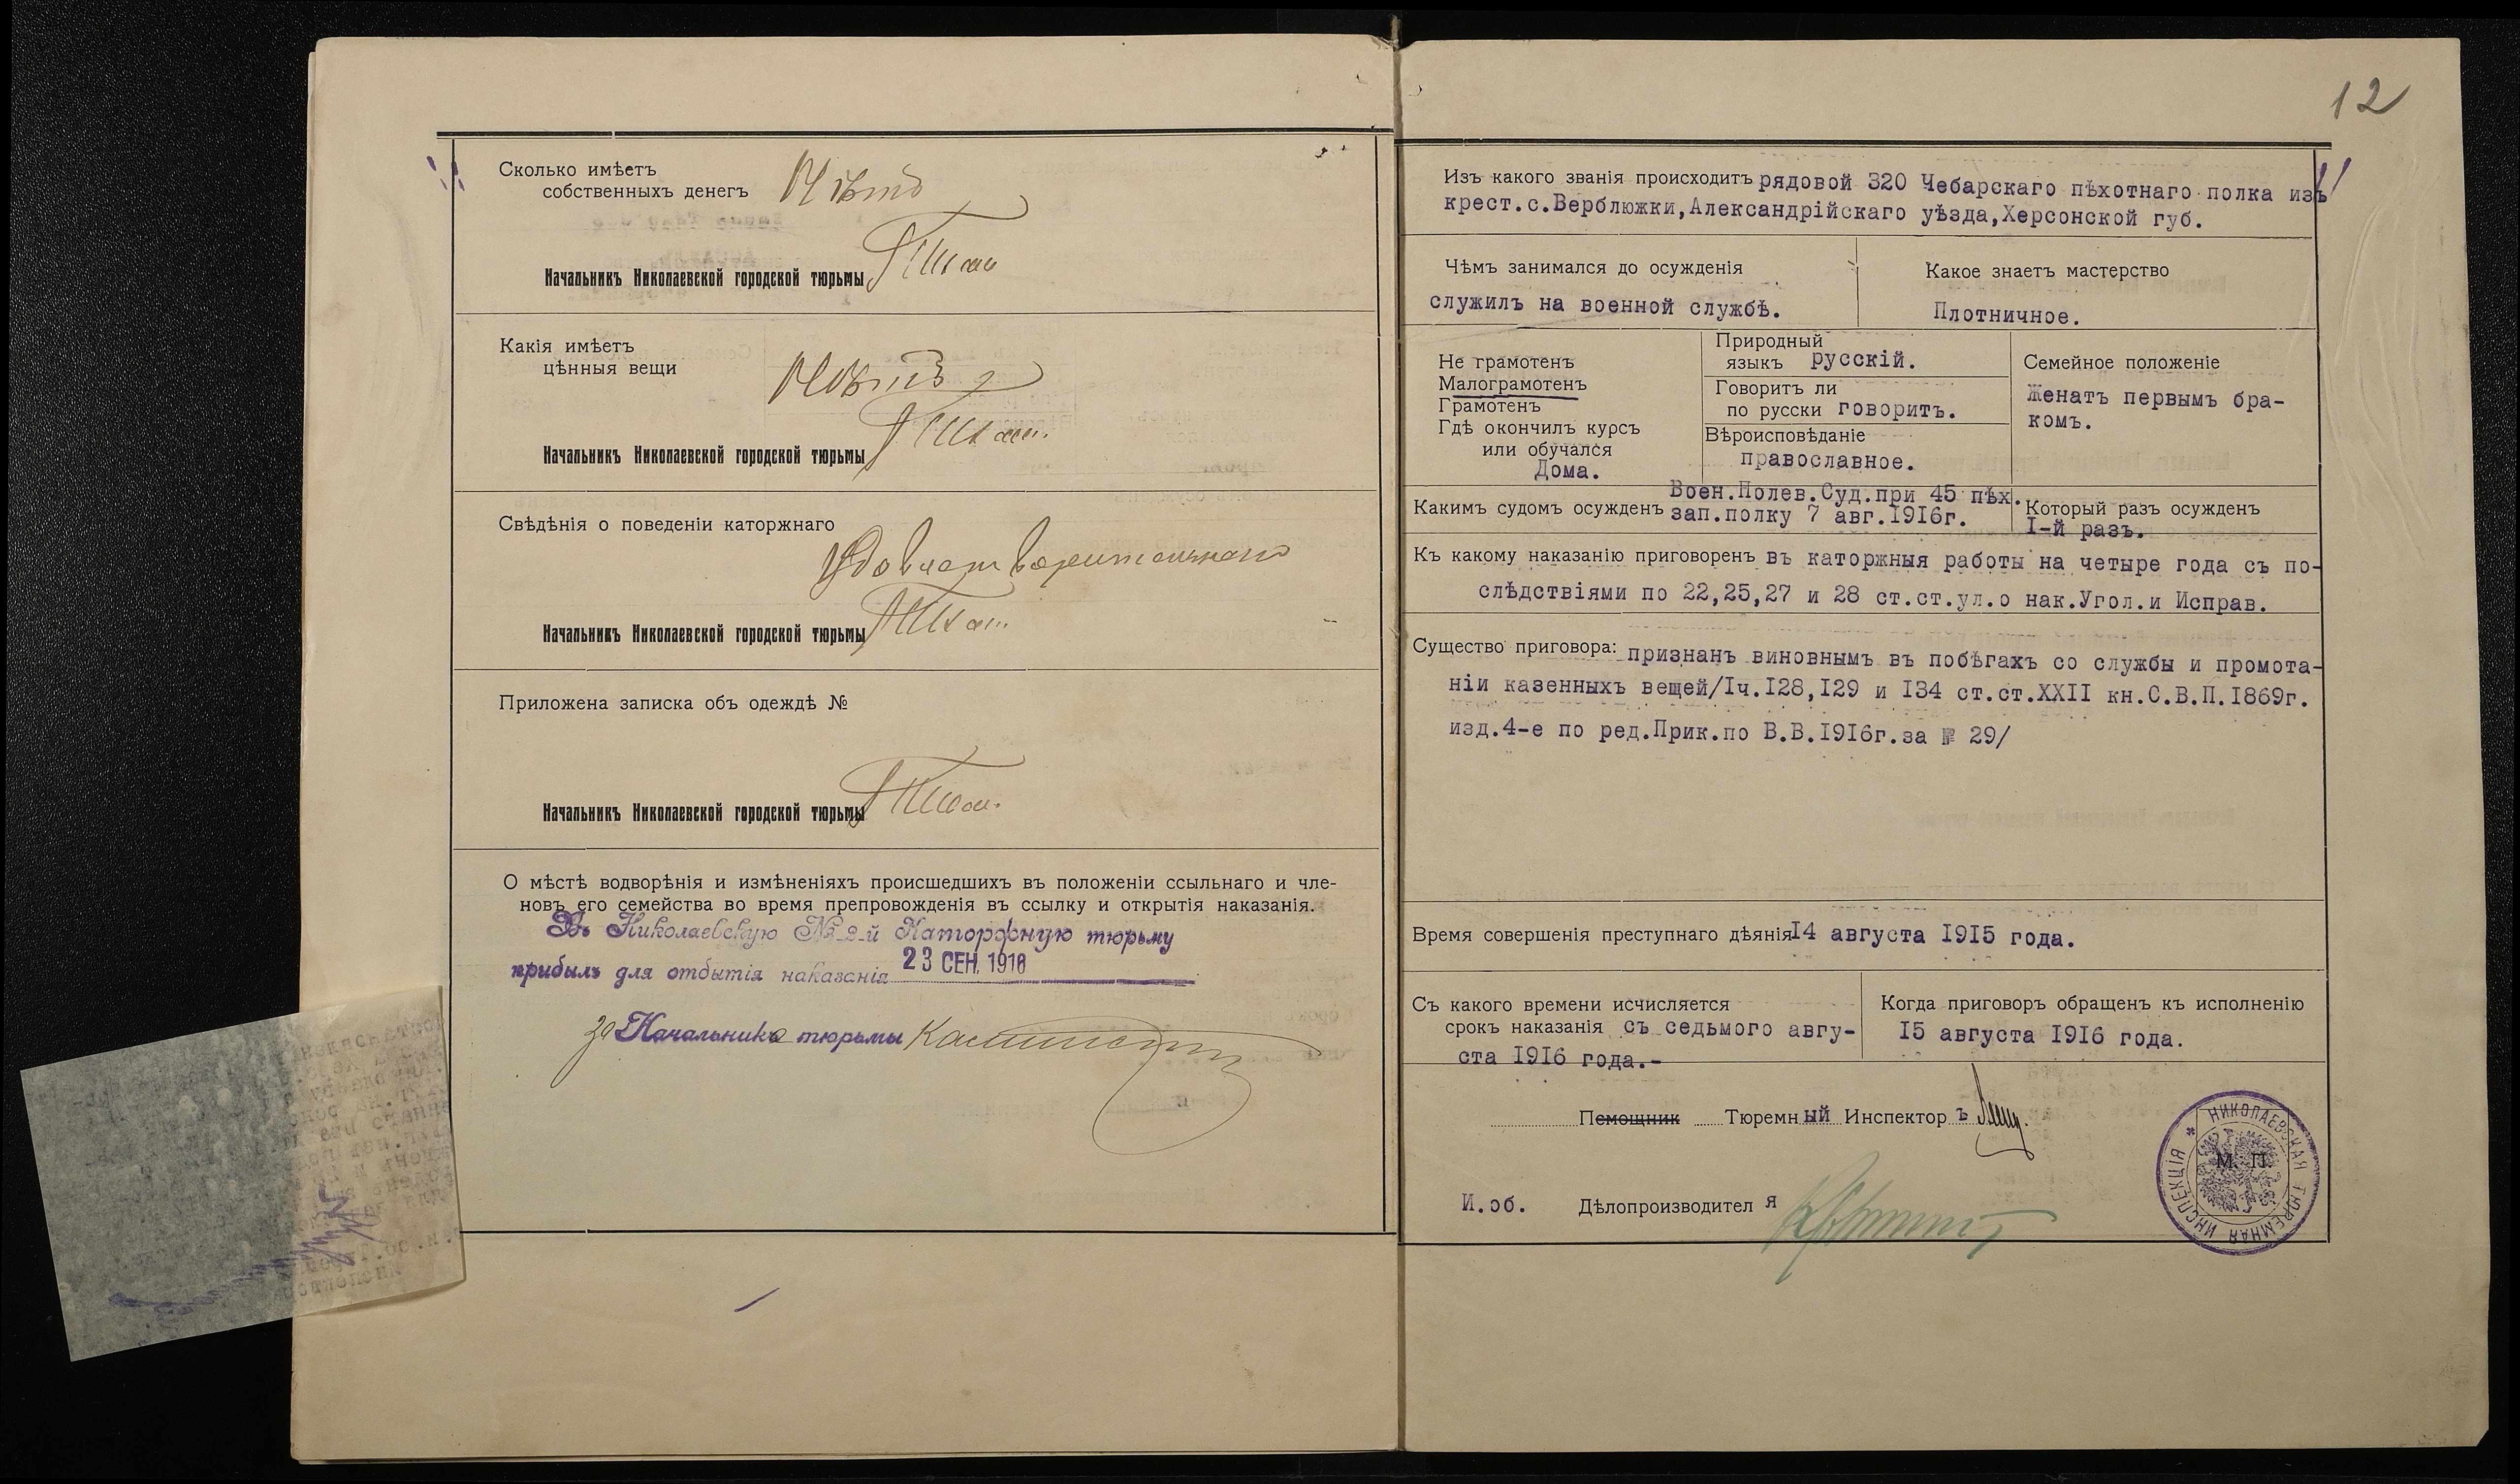 Сколько имѣетъ
собственныхъ денегъ Нѣтъ
Начальникъ Николаевской городской тюрьмы
Какія имѣетъ
цѣнныя вещи Нѣтъ
Начальникъ Николаевской городской тюрьмы
Свѣдѣнія о поведеніи каторжнаго
Удовлетворительнаго
Начальникъ Николаевской городской тюрьмы
Приложена записка объ одеждѣ №
Начальникъ Николаевской городской тюрьмы
О мѣстѣ водворѣнія и измѣненіяхъ происшедшихъ въ положеніи ссыльнаго и чле-
новъ его семейства во время препровожденія въ ссылку и открытія наказанія.
Въ Николаевскую № 2-й Каторжную тюрьму
прибылъ для отбытія наказанія 23 СЕН. 1916
За Начальника тюрьмы
12
Изъ какого званія происходитъ рядовой 320 Чебарскаго пѣхотнаго полка изъ
крест.с.Верблюжки,Александрійскаго уѣзда,Херсонской губ.
Чѣмъ занимался до осужденія
служилъ на военной службѣ.
Какое знаетъ мастерство
Плотничное.
Не грамотенъ
Малограмотенъ
Грамотенъ
Гдѣ окончилъ курсъ
или обучался
Дома.
Природный
языкъ русскій.
Говоритъ ли
по русски говоритъ.
Вѣроисповѣданіе
православное.
Семейное положеніе
Женатъ первымъ бра-
комъ.
Воен.Полев.Суд.при 45 пѣх.
Какимъ судомъ осужденъ зап.полку 7 авг.1916г.
Который разъ осужденъ
I-й разъ.
Къ какому наказанію приговоренъ въ каторжныя работы на четыре года съ по-
слѣдствіями по 22,25,27 и 28 ст.ст.ул.о нак.Угол.и Исправ.
Существо приговора: признанъ виновнымъ въ побѣгахъ со службы и промота-
ніи казенныхъ вещей/Iч.I28,I29 и I34 ст.ст.XXII кн.С.В.П.I869г.
изд.4-е по ред.Прик.по В.В.I9I6г.за № 29/
Время совершенія преступнаго дѣянія I4 августа I9I5 года.
Съ какого времени исчисляется
срокъ наказанія съ седьмого авгу-
ста I9I6 года.-
Когда приговоръ обращенъ къ исполненію
I5 августа I9I6 года.
Помощник Тюремный Инспекторъ
НИКОЛАЕВСКАЯ ТЮРЕМНАЯ ИНСПЕКЦІЯ
М. П.
И.об. Дѣлопроизводителя